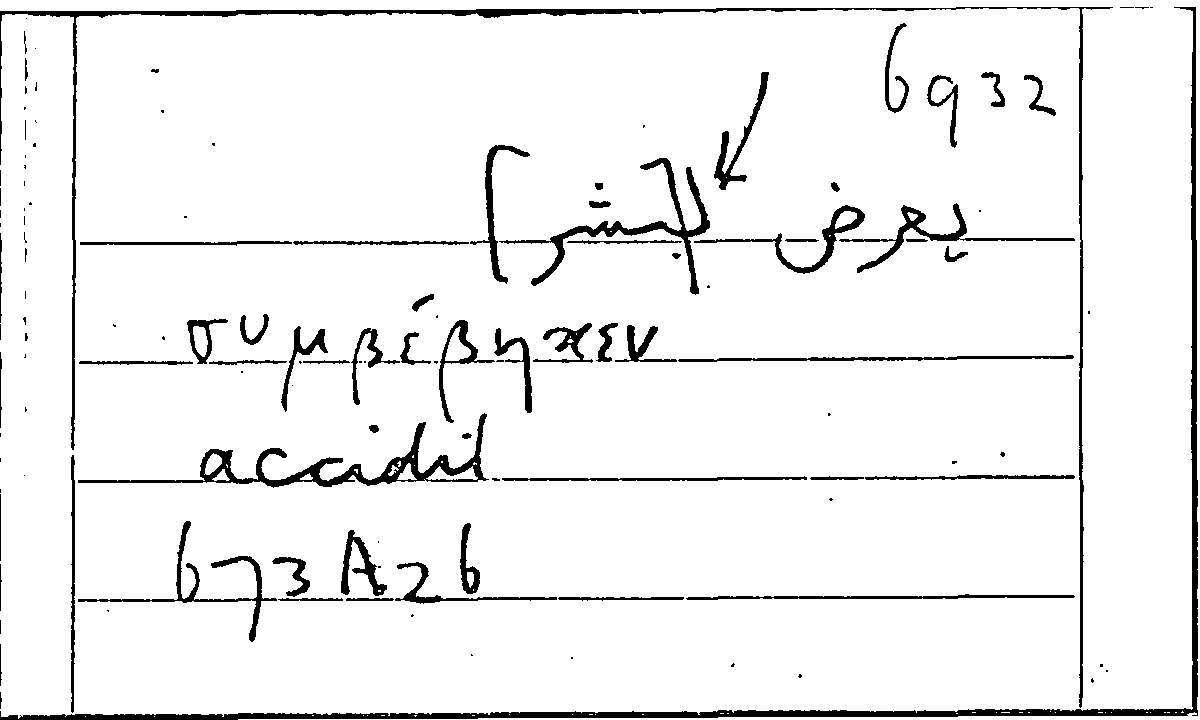 6932
يعرض [لبشر]
συμβέβηκεν
accidit
673A26